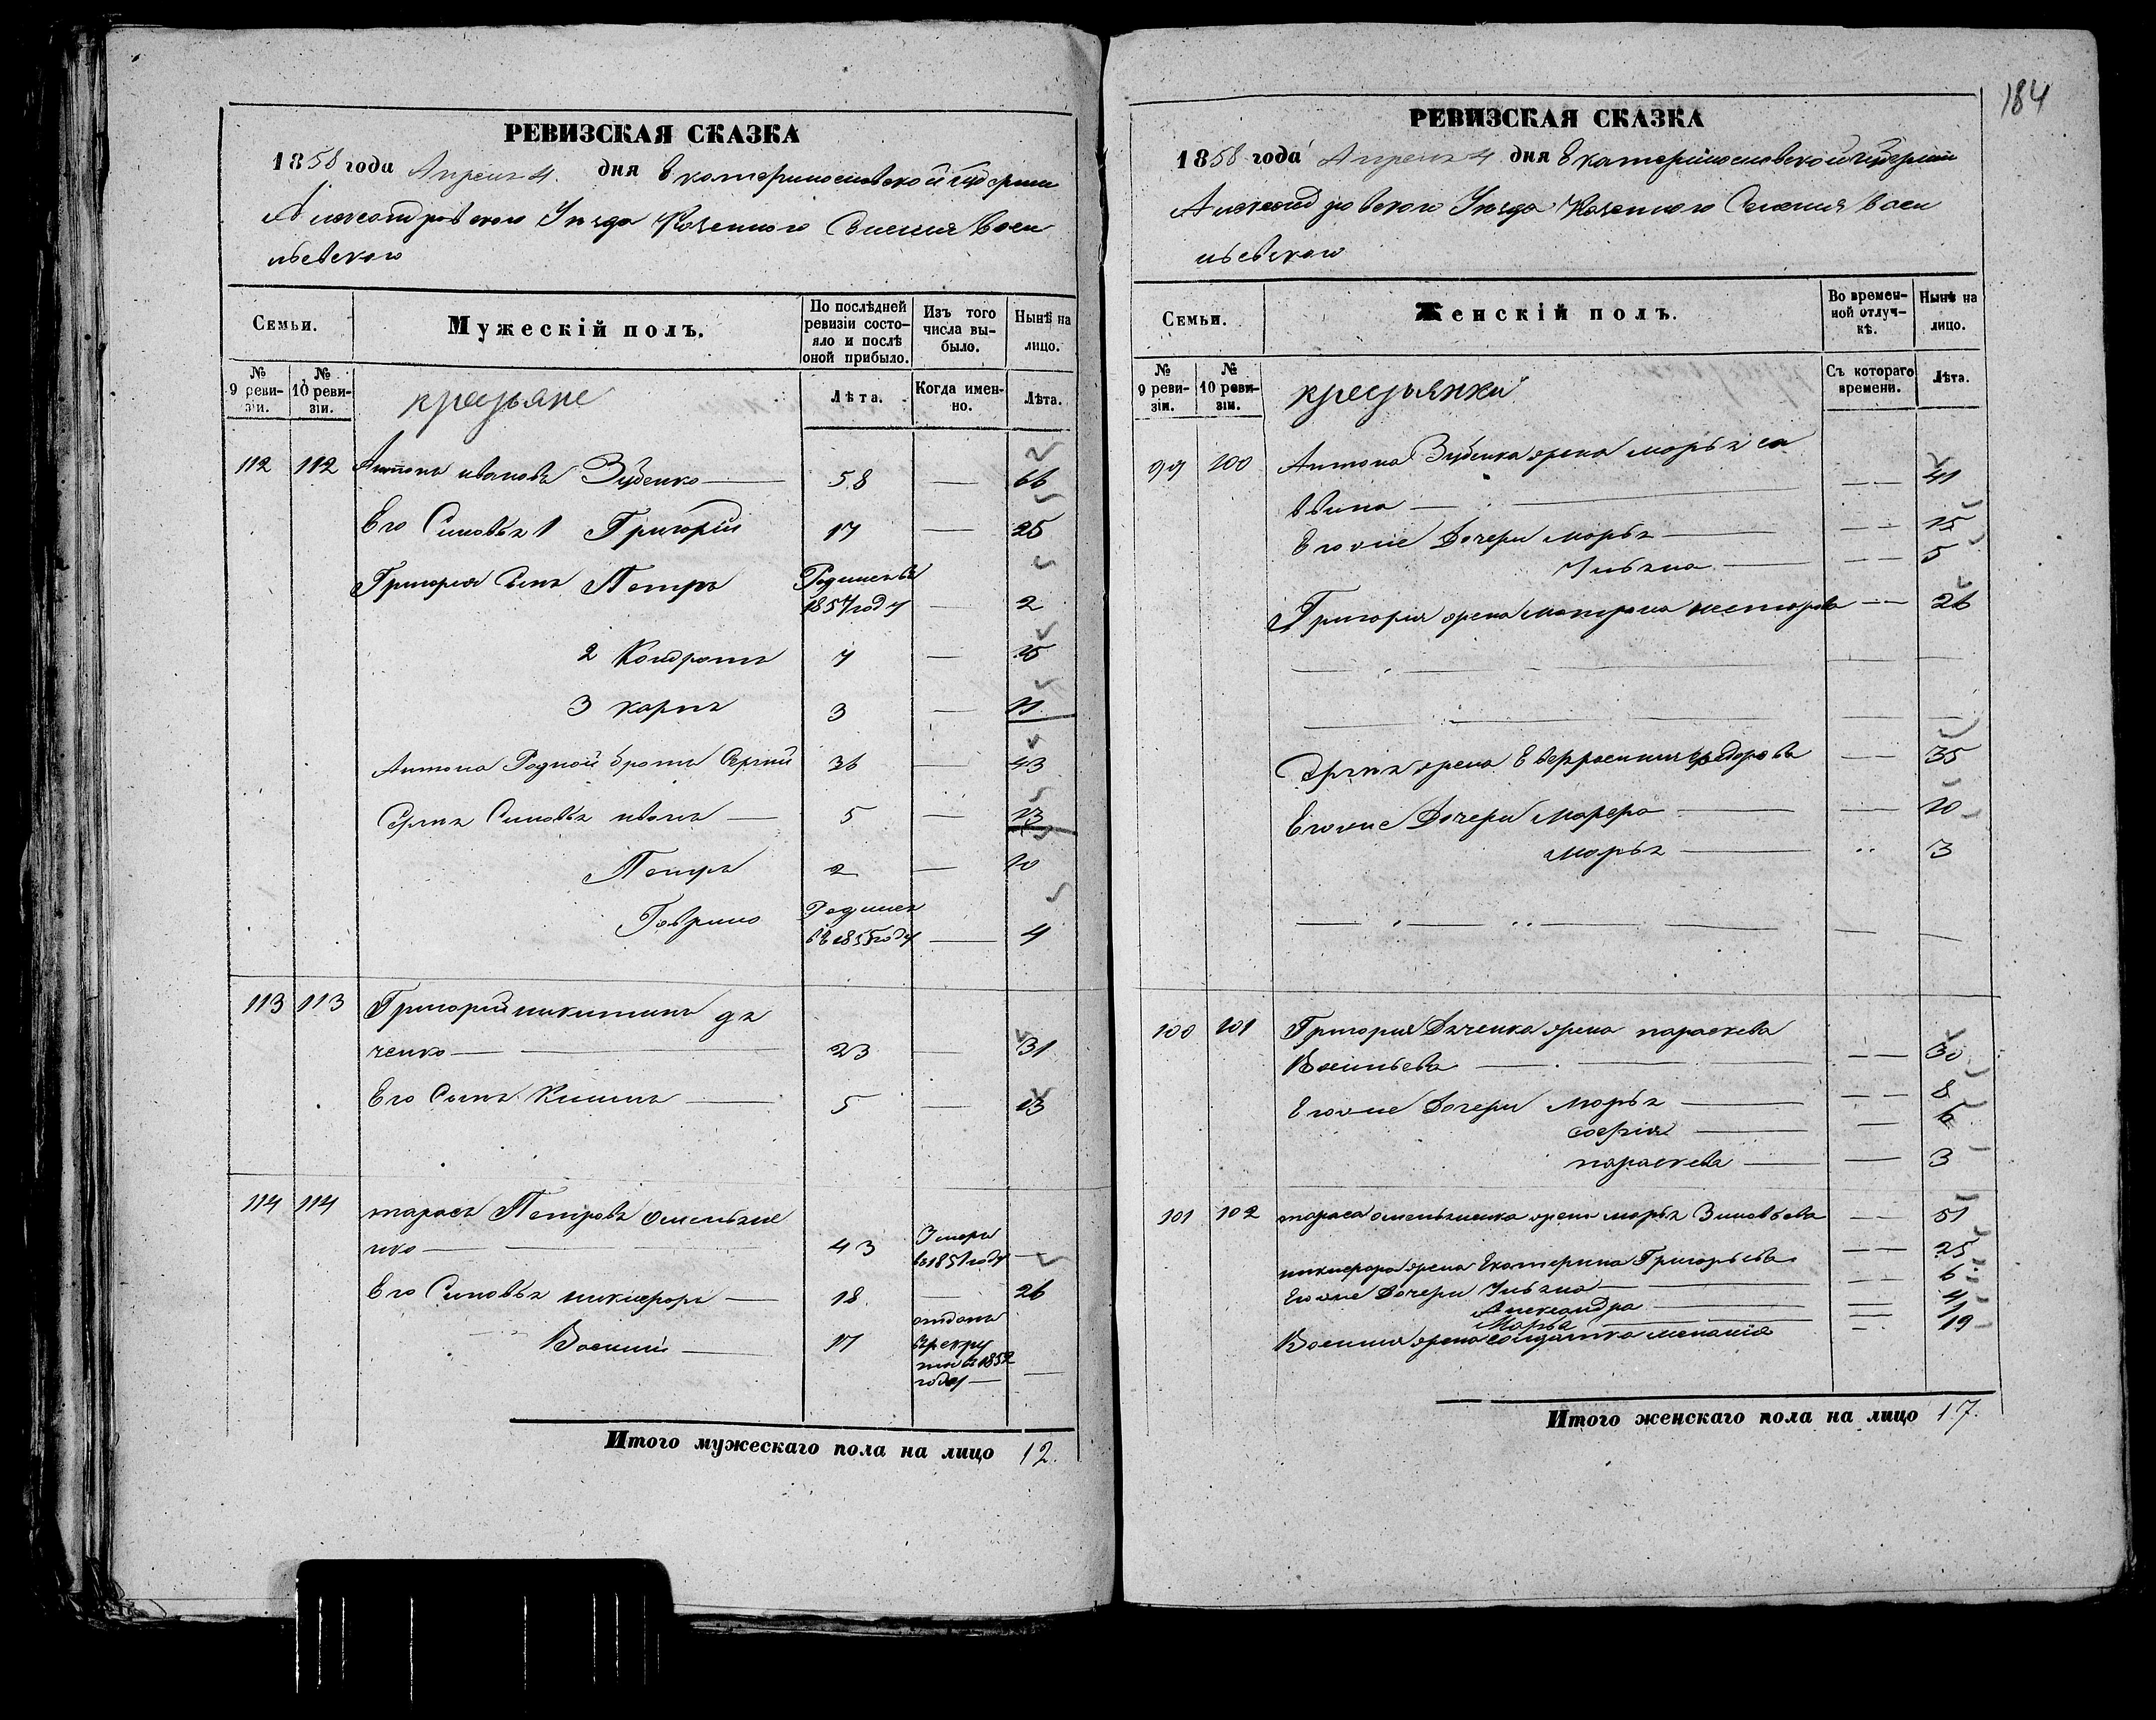 РЕВИЗСКАЯ СКАЗКА
1858 года Апреля 4 дня Екатеринославской губернии
Александровского Уезда Казенного Селения Васи
льевского
Семьи.
Мужескій полъ.
По послѣдней ревизіи состо-
яло и послѣ оной прибыло.
Изъ того числа вы-
было.
Нынѣ на лицо.
№ 9 реви-
зіи.
№ 10 реви-
зіи.
крестьяне
Лѣта.
Когда имен-
но.
Лѣта.
112 112 Антонъ ивановъ Зубенко — 58 — 66
Его Сыновья 1 Григорій 17 — 25
Григорія Сынъ Петръ Родился въ
1857 году — 2
2 Кондратъ 7 — 15
3 карпъ 3 — 11
Антона Родной братъ Сергий 36 — 43
Сергия Сыновья иванъ — 5 — 13
Петръ 2 — 10
Гаврило Родился
въ 1855 году — 4
113 113 Григорій никитинъ дя
ченко — 23 — 31
Его Сынъ Климъ — 5 — 13
114 114 тарасъ Петровъ омелья
нко — 43 Умеръ
въ 1851 году —
Его Сыновья никифоръ — 18 — 26
Василий — 17 отданъ
въ рекру
ты въ 1852
году — —
Итого мужескаго пола на лицо 12.
184
РЕВИЗСКАЯ СКАЗКА
1858 года Апреля 4 дня Екатеринославской губернии
Александровского Уезда Казенного Селения Васи
льевского
Семьи.
Женскій полъ.
Во времен-
ной отлуч-
кѣ.
Нынѣ на лицо.
№ 9 реви-
зіи.
№ 10 реви-
зіи.
крестьянки
Съ котораго времени.
Лѣта.
99 100 Антона Зубенка жена марья са
ввина — — — 41
Еговие Дочери марья — — — 15
Ульяна — — — 5
Григория жена матрона нестерова — — 26
Сергия жена Евфросиния федорова — — 35
Еговие Дочери марфа — — — 10
марья — 3
100 101 Григория Дяченка жена параскева
Васильева — — — 30
Еговие Дочери марья — — — 8
софия — — 6
параскева — — 3
101 102 тараса омельянка жена марья Зиновьева — — 51
никифора жена Екатерина Григорьева — — 25
Еговие Дочери Ульяна — — — 6
Александра — — 4
Марья — — 1
Василия жена солдатка мелания — 19
Итого женскаго пола на лицо 17.